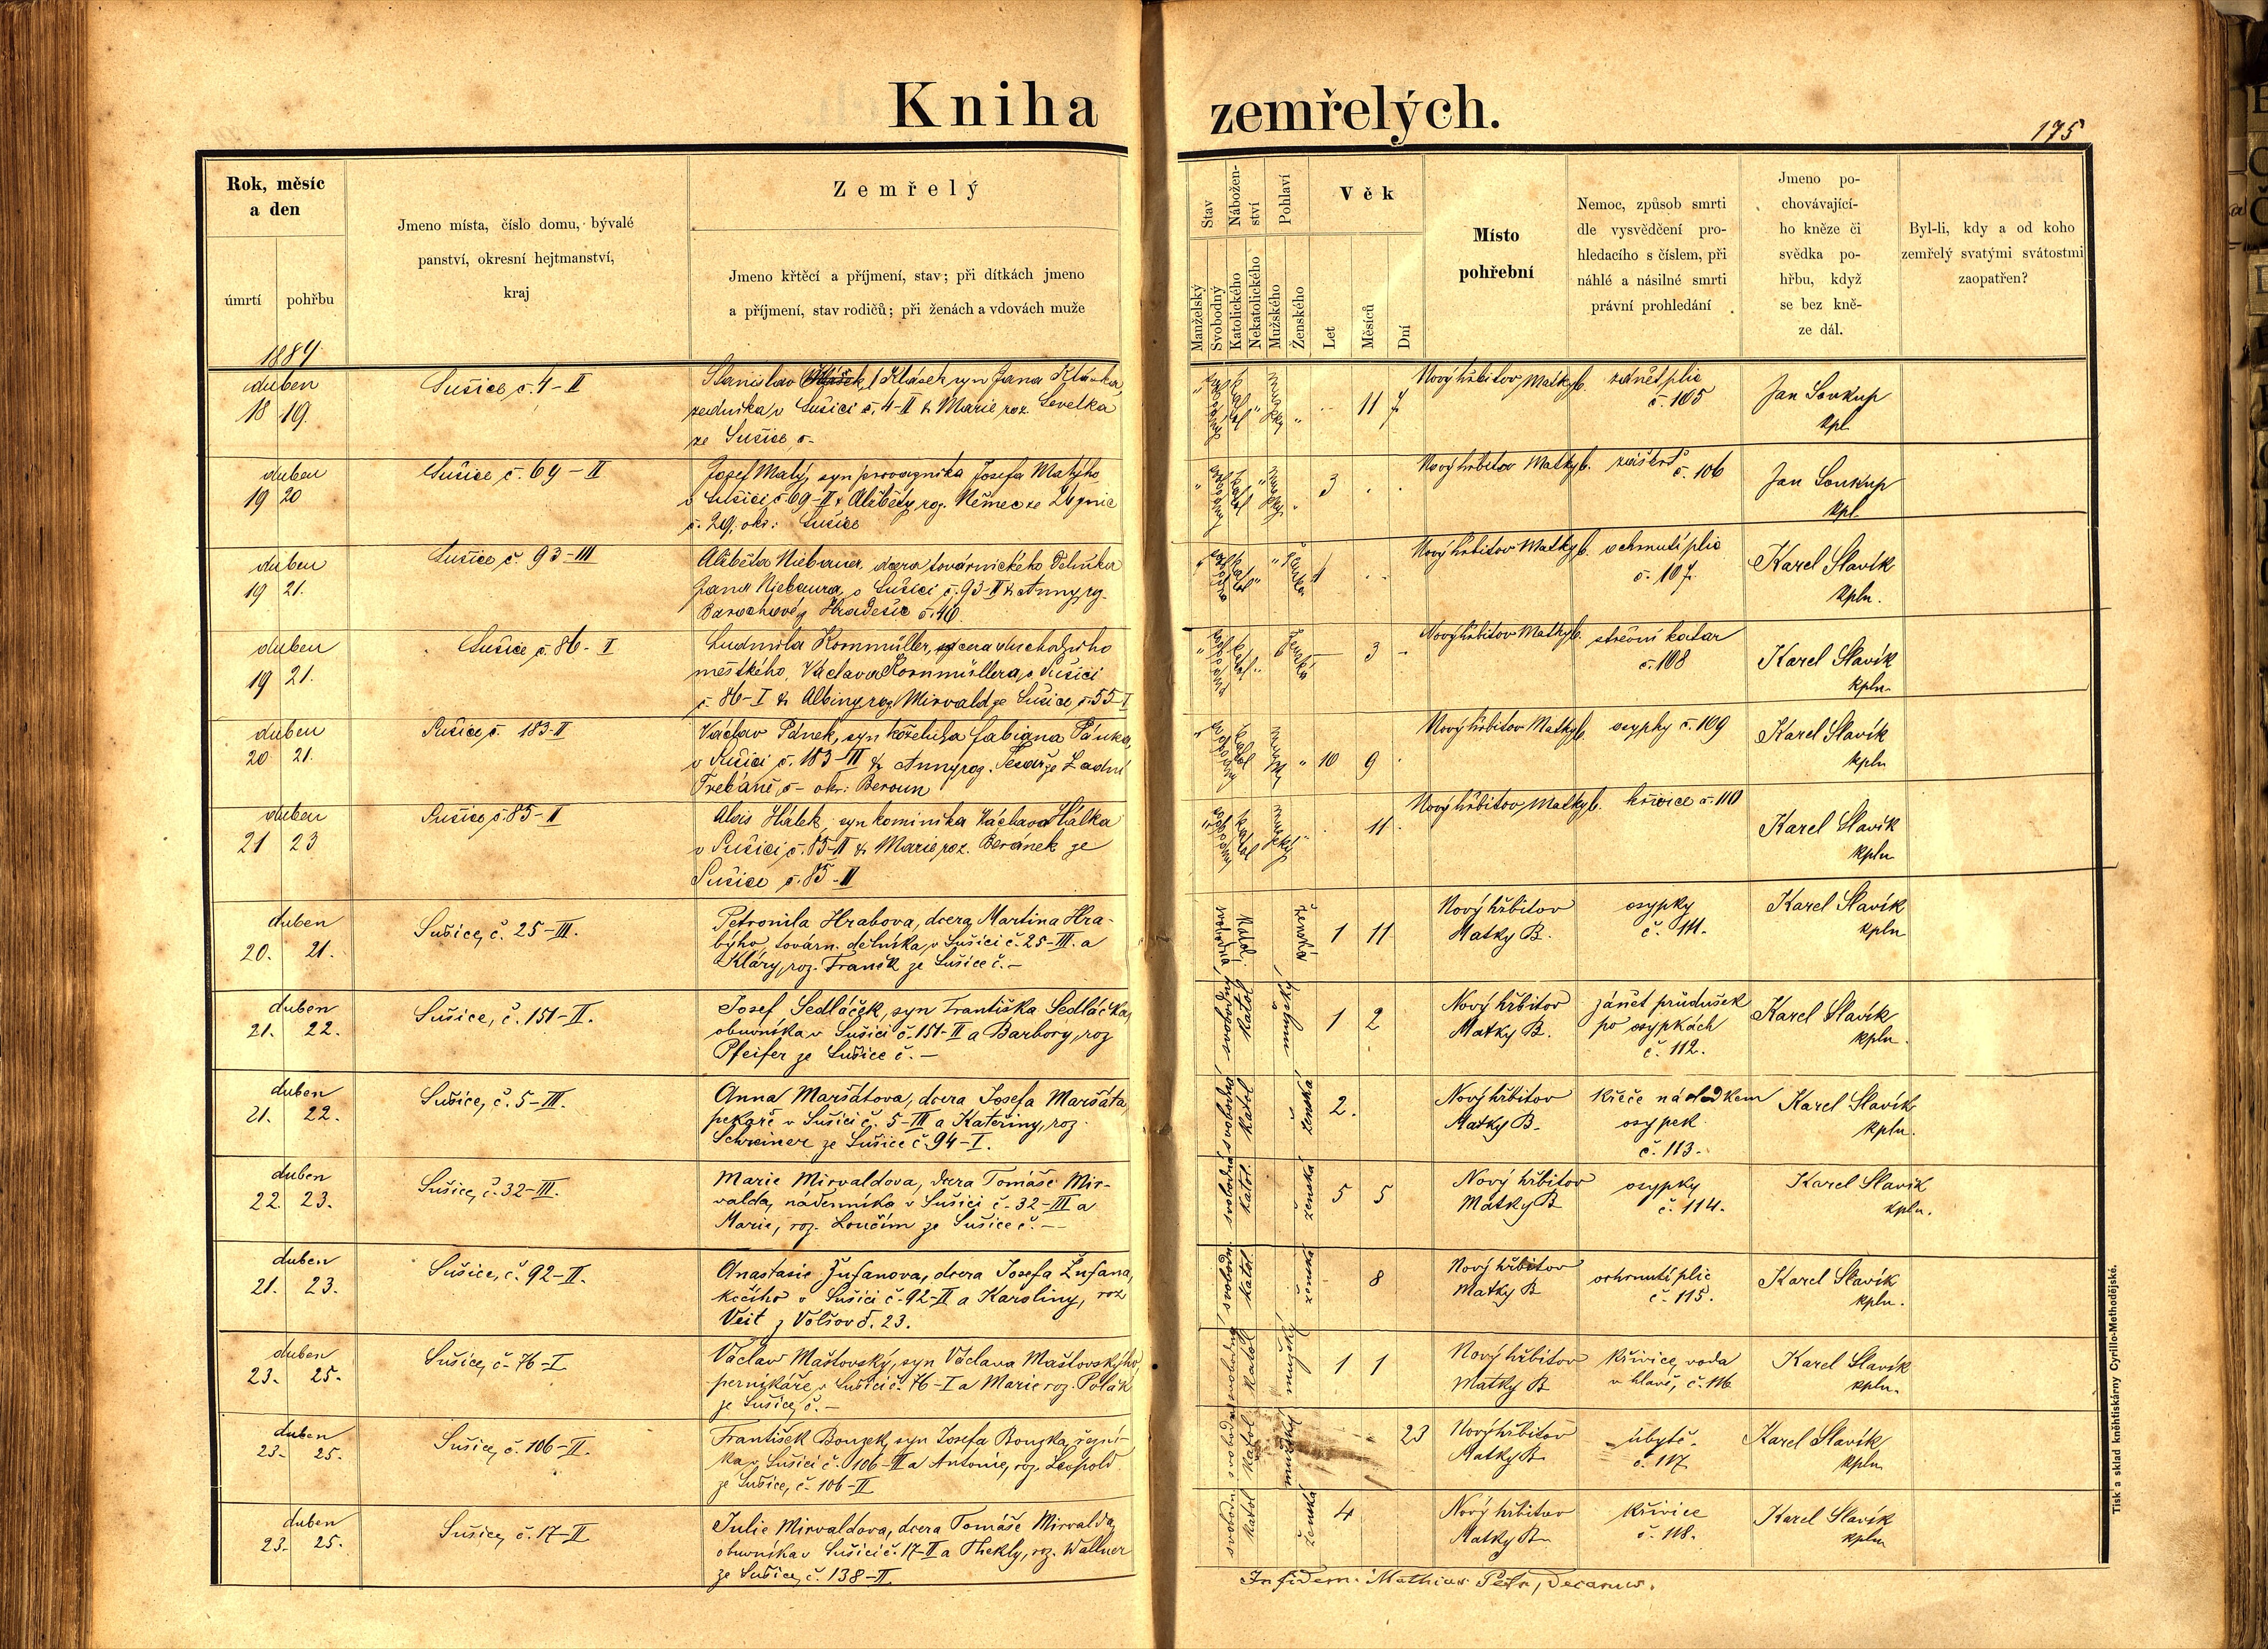 Kniha zemřelých.
175
Rok, měsíc
a den
úmrtí
pohřbu
Jmeno místa, číslo domu, bývalé
panství, okresní hejtmanství,
kraj
Zemřelý
Jmeno křtěcí a příjmení, stav; při dítkách jmeno
a příjmení, stav rodičů; při ženách a vdovách muže
Stav
Manželský
Svobodný
Nábožen-
ství
Katolického
Nekatolického
Pohlaví
Mužského
Ženského
Věk
Let
Měsíců
Dní
Místo
pohřební
Nemoc, způsob smrti
dle vysvědčení pro-
hledacího s číslem, při
náhlé a násilné smrti
právní prohledání
Jmeno po-
chovávající-
ho kněze či
svědka po-
hřbu, když
se bez kně-
ze dál.
Byl-li, kdy a od koho
zemřelý svatými svátostmi
zaopatřen?
1884
duben
18 19.
Sušice, č. 4-II
Stanislav Klásek, syn Jana Kláska,
zedníka v Sušici č. 4-II & Marie roz.
ze Sušice č-
svobodný katol mužský
11 7
Nový hřbitov Matky b. zánět plic
č. 105
Jan Soukup
kpl.
duben
19 20
Sušice č. 69-II
Josef Malý, syn provazníka Josefa Malýho
v Sušici č 69-II & Alžběty, roz. Němec ze
č. 29, okr: Sušice
svobodný katol mužský
3
Nový hřbitov Matky b. záškrt č. 106
Jan Soukup
kpl.
duben
19 21.
Sušice č. 93-III
Alžběta Niebauer, dcera továrnického dělníka
Jana Niebaura, v Sušici č. 93-II & Anny, roz.
z Hradešic č. 40.
svobodná katol ženská
1
Nový hřbitov Matky b. ochrnutí plic
č. 107.
Karel Slavík
kpln.
duben
19 21.
Sušice č. 86-I
Ludmila Kornmüller, dcera duchodního
městkého, Václava Kornmüllera, v Sušici
č. 86-I & Albiny, roz. Mirvald ze Sušice, č. 55-I
svobodná katol ženská
3
Nový hřbitov Matky b. střevní katar
č. 108
Karel Slavík
kpln.
duben
20 21.
Sušice, č. 183-II
Václav Pánek, syn koželuha Fabiana Pánka,
v Sušici č. 183-II & Anny, roz. Tesař ze Zadní
Třebáně, č- okr: Beroun
svobodný katol mužský
10 9
Nový hřbitov Matky b. osypky č. 109
Karel Slavík
kpln
duben
21 23
Sušice, č. 85-II
Alois Hálek, syn kominíka Václava Hálka
v Sušici, č. 85-II & Marie, roz. Beránek ze
Sušice č. 85-II
svobodný katol mužský
11
Nový hřbitov, Matky b. křivice č. 110
Karel Slavík
kpln
duben
20. 21.
Sušice, č. 25-III.
Petronila Hrabova, dcera Martina Hra-
býho, továrn. dělníka, v Sušici č. 25-III. a
Kláry, roz. Franěk ze Sušice č. -
svobodná katol. ženská
1 11
Nový hřbitov
Matky B.
osypky
č. 111.
Karel Slavík
kpln
duben
21. 22.
Sušice, č. 151-II.
Josef Sedláček, syn Františka Sedláčka,
obuvníka v Sušici č. 151-II a Barbory, roz
Pfeifer ze Sušice č. -
svobodný katol mužský
1 2
Nový hřbitov
Matky B.
zánět průdušek
po osypkách
č. 112.
Karel Slavík
kpln.
duben
21. 22.
Sušice, č. 5-III.
Anna Maršátova, dcera Josefa Maršáta,
pekaře v Sušici č. 5-III a Kateřiny, roz.
Schreiner ze Sušice č. 94-I.
svobodná katol ženská
2.
Nový hřbitov
Matky B.
křeče následkem
osypek
č. 113.
Karel Slavík
kpln.
duben
22. 23.
Sušice, č. 32-III.
Marie Mirvaldova, dcera Tomáše Mir-
valda, nádenníka v Sušici č. 32-III a
Marie, roz. Loučím ze Sušice č. --
svobodná katol. ženská
5 5
Nový hřbitov
Matky B
osypky
č. 114.
Karel Slavík
kpln.
duben
21. 23.
Sušice, č. 92-II.
Anastasie Žufanova, dcera Josefa Žufana,
kočího v Sušici č. 92-II a Karoliny, roz
Veit z Volšov č. 23.
svobodn. katol. ženská
8
Nový hřbitov
Matky B
ochrnutí plic
č. 115.
Karel Slavík
kpln.
duben
23. 25.
Sušice, č. 76-I
Václav Maštovský, syn Václava Maštovskýho,
perníkáře, v Sušici č. 76-I a Marie roz. Polák
ze Sušice, č. -
svobodný katol mužský
1 1
Nový hřbitov
Matky B
křivice, voda
v hlavě, č. 116
Karel Slavík
kpln.
duben
23. 25.
Sušice, č. 106-II.
František Bouzek, syn Josefa Bouzka, řezní-
ka v Sušici č. 106-II a Antonie, roz. Leopold
ze Sušice, č. 106-II
svobodný katol mužský
23
Nový hřbitov
Matky B.
úbytě.
č. 117
Karel Slavík
kpln
duben
23. 25.
Sušice, č. 17-II
Julie Mirvaldova, dcera Tomáše Mirvalda,
obuvníka v Sušici č. 17-II a Thekly, roz. Wallner
ze Sušice, č. 138-II
svobodn katol ženská
4
Nový hřbitov
Matky B.
křivice
č. 118.
Karel Slavík
kpln
In fidem: Mathias Decanus.
Tisk a sklad kněhtiskárny Cyrillo-Methodějské.